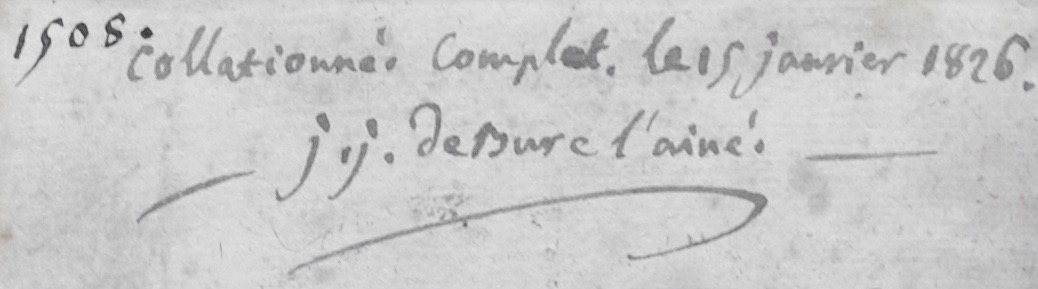 1508. Collationné. Complet. le 15 janvier 1826.
j.j. DeBure l'ainé.